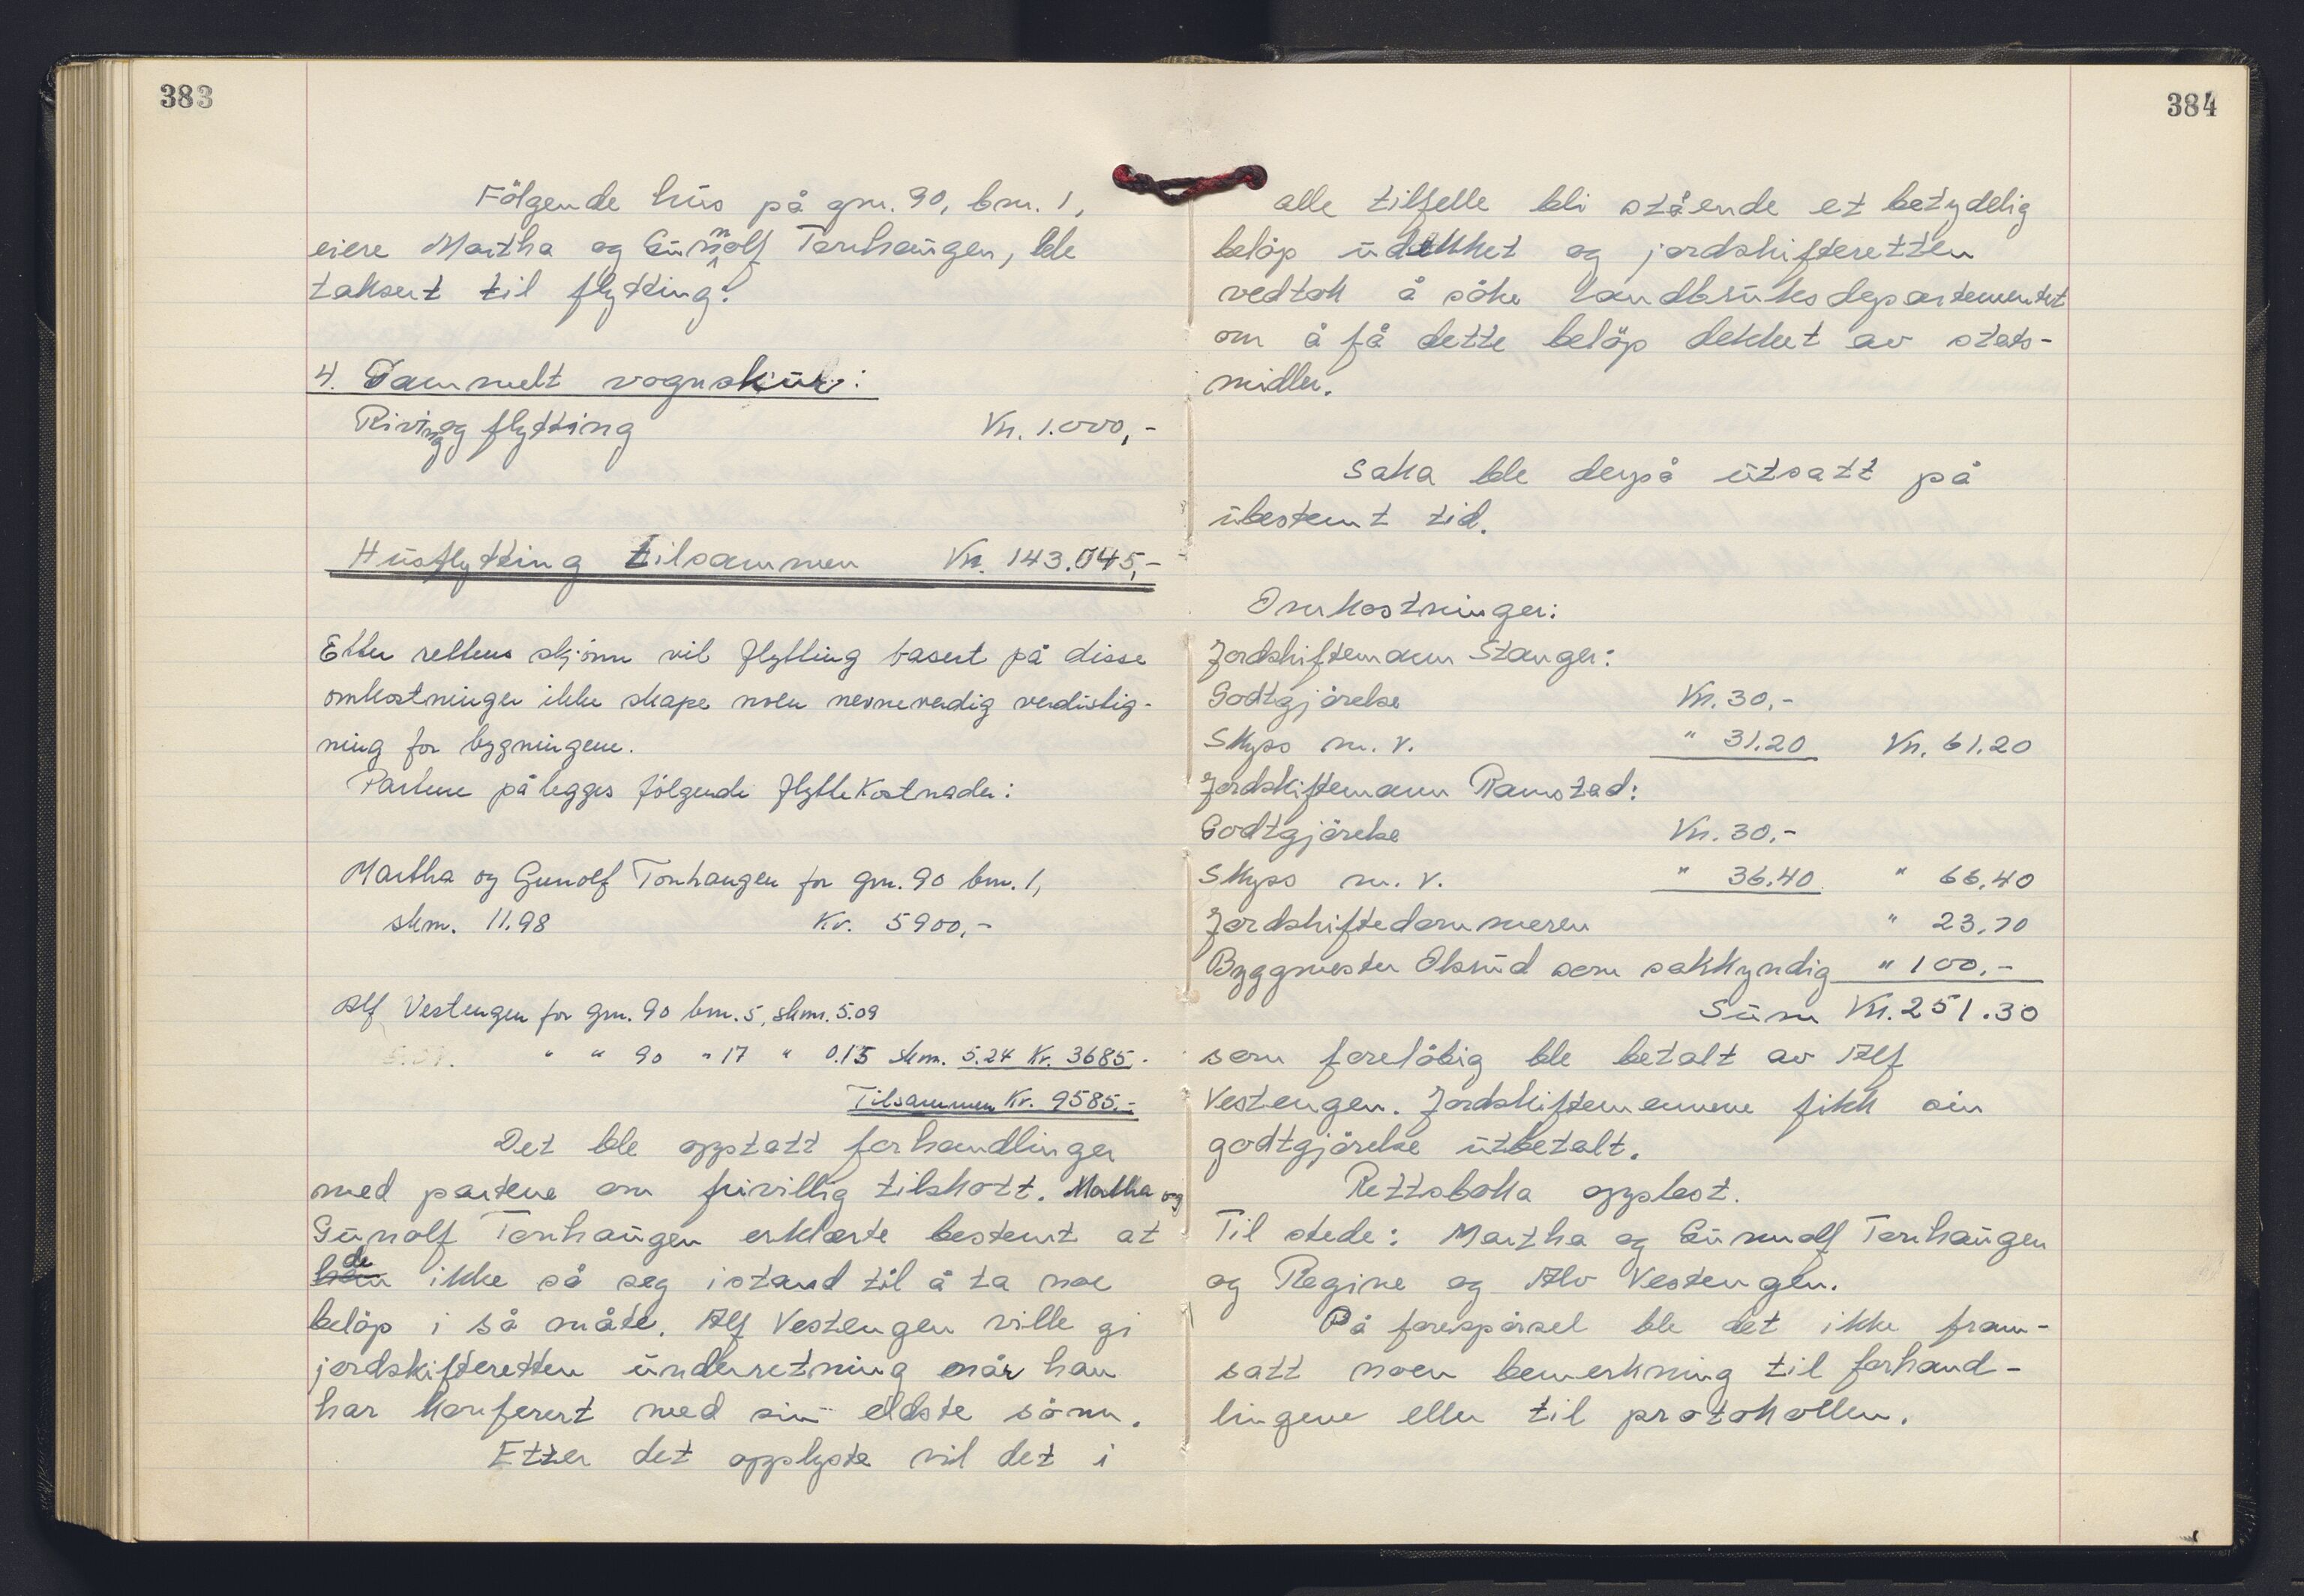 383
Følgende hus på gnr. 90, bnr. 1,
eiere Martha og Gunnolf Tonhaugen, ble
taksert til flytting:
4. Gammelt vognskur:
Riving og flytting Kr. 1.000,-
Husflytting tilsammen Kr. 143.045,-
Etter rettens skjønn vil flytting basert på disse
omkostninger ikke skape noen nevneverdig verdistig-
ning for bygningene.
Partene pålegges følgende flyttekostnader:
Martha og Gunolf Tonhaugen for gnr. 90 bnr. 1,
skm. 11.98 Kr. 5900,-
Alf Vestengen for gnr. 90 bnr. 5, skm. 5.09
" " 90 " 17 " 0.15 skm. 5.24 Kr. 3685.-
Tilsammen Kr. 9585.-
Det ble opptatt forhandlinger
med partene om frivillig tilskott. Martha og
Gunolf Tonhaugen erklærte bestemt at
han de ikke så seg istand til å ta noe
beløp i så måte. Alf Vestengen ville gi
jordskifteretten underretning når han
har konferert med sin eldste sønn.
Etter det opplyste vil det i
384
alle tilfelle bli stående et betydelig
beløp udekket og jordskifteretten
vedtok å søke Landbruksdepartementet
om å få dette beløp dekket av stats-
midler.
Saka ble derpå utsatt på
ubestemt tid.
Omkostninger:
Jordskiftemann Stanger:
Godtgjørelse Kr. 30,-
Skyss m. v. " 31.20 Kr. 61.20
Jordskiftemann Ramstad:
Godtgjørelse Kr. 30,-
Skyss m. v. " 36.40 " 66.40
Jordskiftedommeren " 23.70
Byggmester Olsrud som sakkyndig " 100.-
Sum Kr. 251.30
som foreløbig ble betalt av Alf
Vestengen. Jordskiftemennene fikk sin
godtgjørelse utbetalt.
Rettsboka opplest.
Til stede: Martha og Gunnolf Tonhaugen
og Regine og Alv Vestengen.
På forespørsel ble det ikke fram-
satt noen bemerkning til forhand-
lingene eller til protokollen.